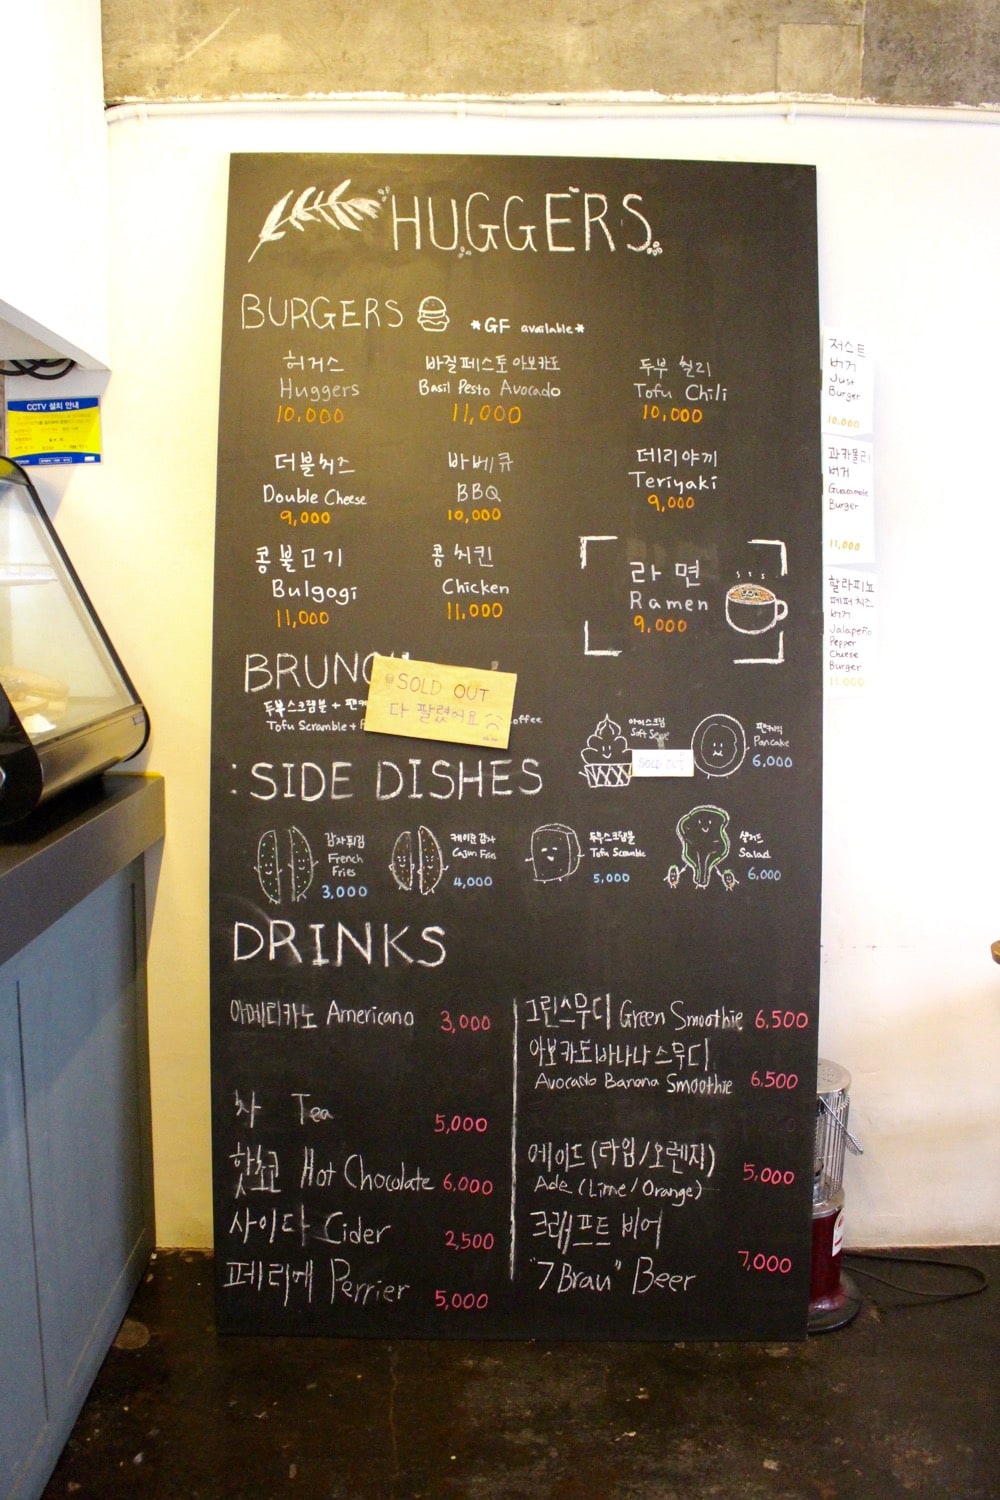 HUGGERS
BURGERS
*GF available*
허거스
Huggers
10,000
바질페스토 아보카도
Basil Pesto Avocado
11,000
두부 칠리
Tofu Chili
10,000
더블치즈
Double Cheese
9,000
바베큐
BBQ
10,000
데리야끼
Teriyaki
9,000
콩불고기
Bulgogi
11,000
콩치킨
Chicken
11,000
라면
Ramen
9,000
BRUNC
SOLD OUT
다 팔렸어요
두부스크램블 + 팬케
Tofu Scramble +
offee
아이스크림
Soft Serve
SOLD OUT
팬케익
Pancake
6,000
:SIDE DISHES
감자튀김
French
Fries
3,000
케이준 감자
Cajun Fries
4,000
두부스크램블
Tofu Scramble
5,000
샐러드
Salad
6,000
DRINKS
아메리카노 Americano 3,000
차 Tea 5,000
핫쵸코 Hot Chocolate 6,000
사이다 Cider 2,500
페리에 Perrier 5,000
그린스무디 Green Smoothie 6,500
아보카도바나나스무디
Avocado Banana Smoothie 6,500
에이드(라임/오렌지)
Ade (Lime/Orange) 5,000
크래프트 비어
"7 Brau" Beer 7,000
저스트
버거
Just
Burger
10,000
과카몰리
버거
Guacamole
Burger
11,000
할라피뇨
페퍼치즈
버거
Jalapeño
Pepper
Cheese
Burger
11,000
CCTV 설치 안내